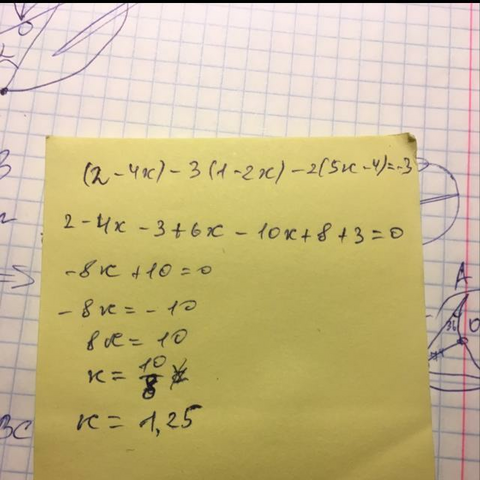 (2 - 4x) - 3 (1 - 2x) - 2(5x - 4) = -3
2 - 4x - 3 + 6x - 10x + 8 + 3 = 0
-8x + 10 = 0
-8x = -10
8x = 10
x = 10/8
x = 1,25
A